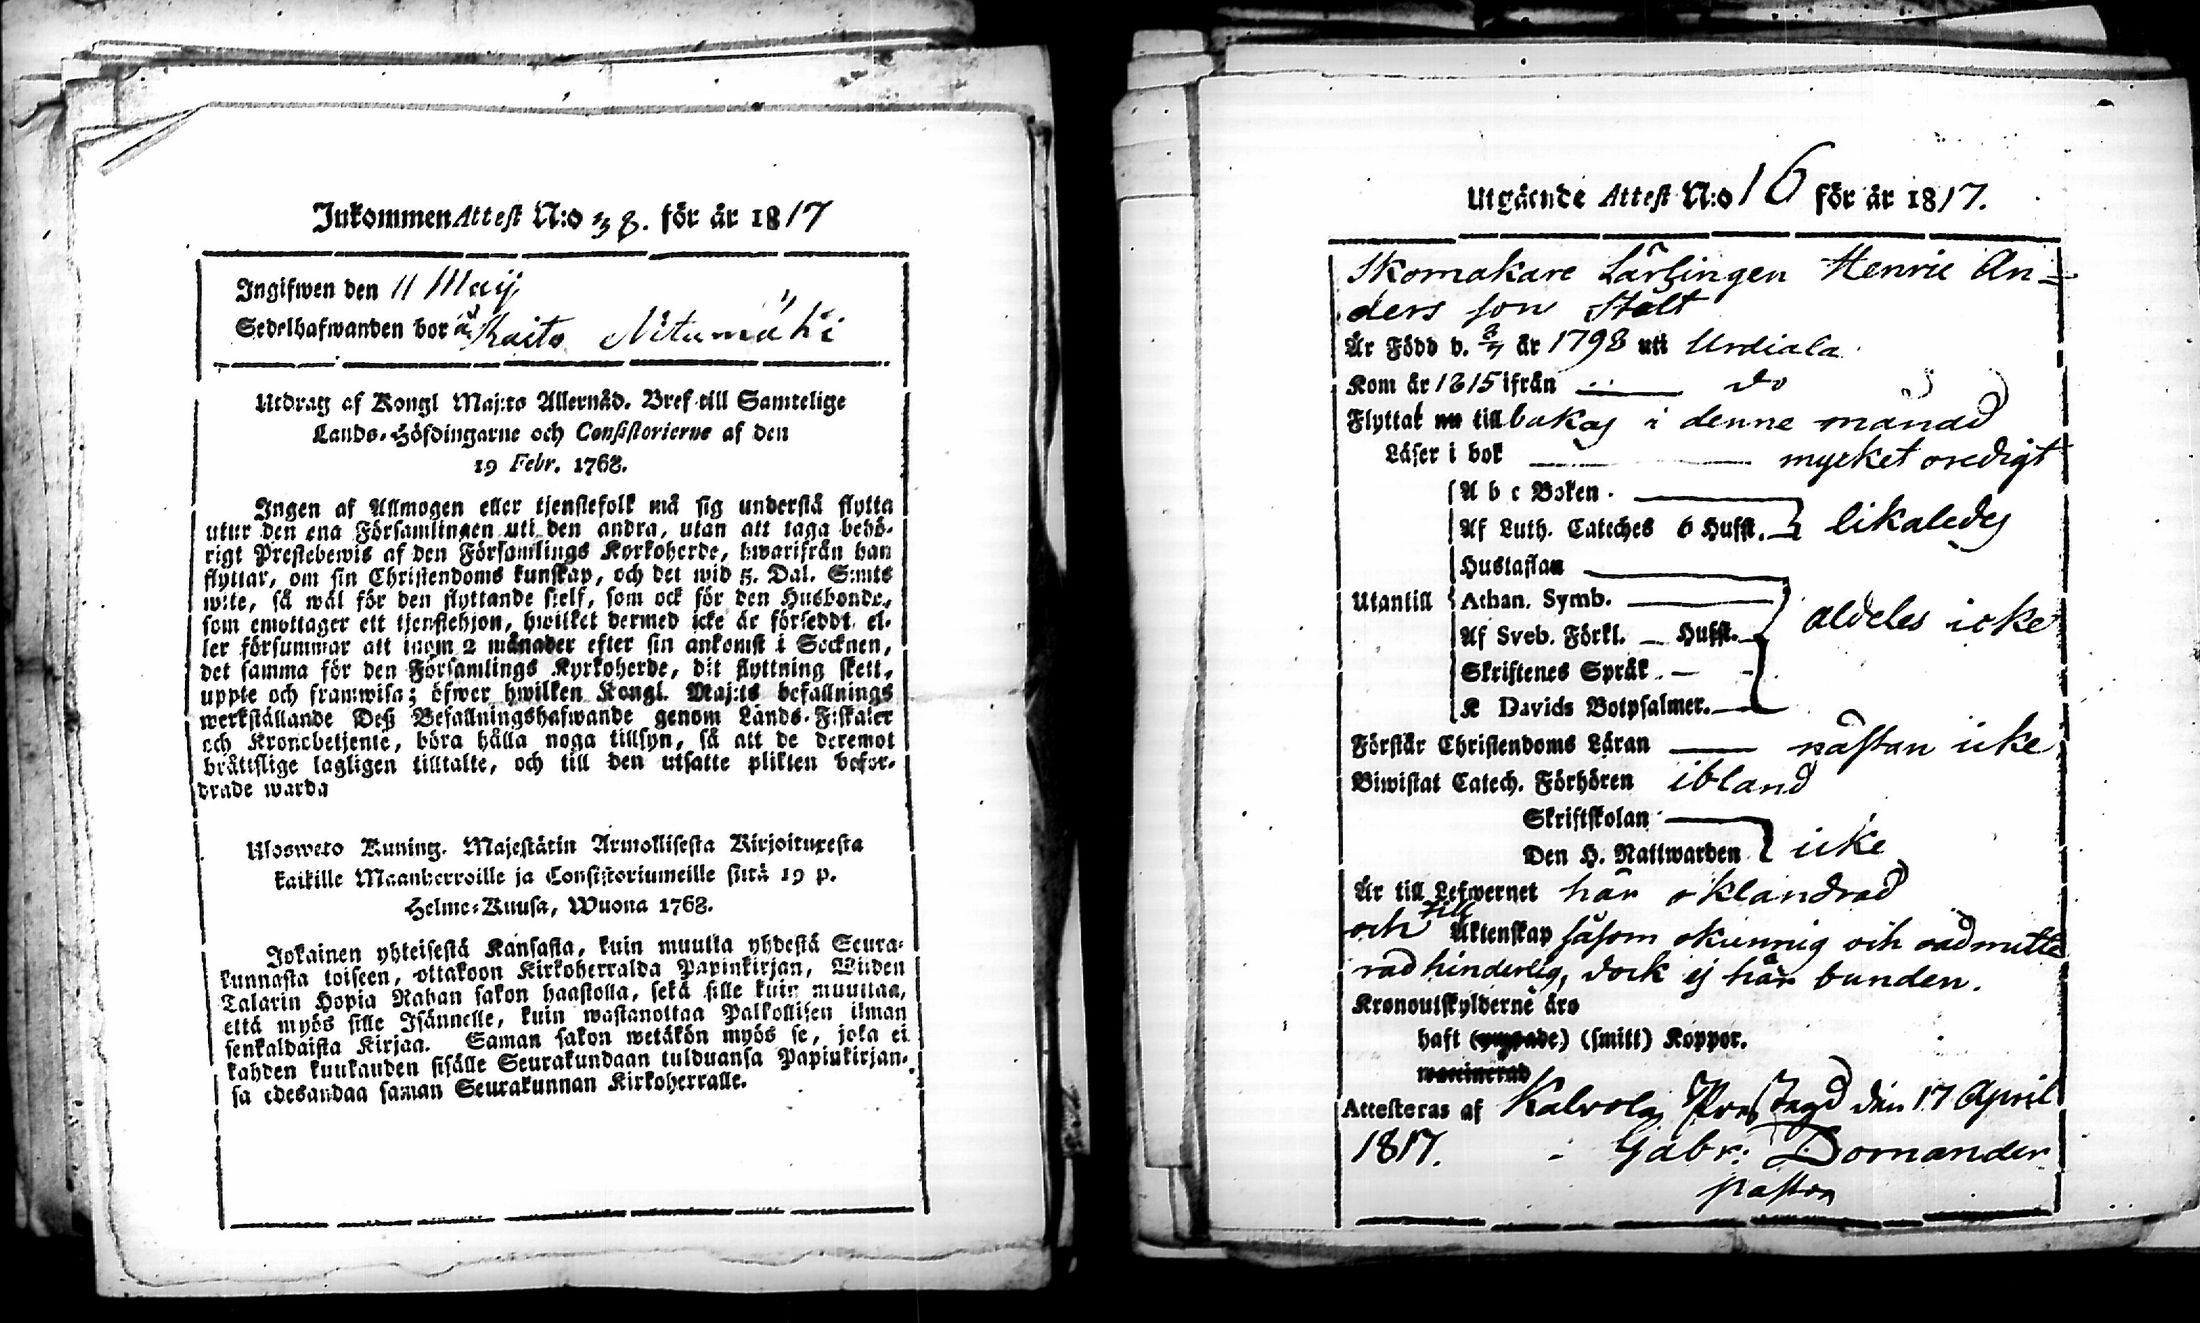 Inkommen Attest N:o 38. för år 1817
Ingifwen den 11 Maij
Sedelhafwanden bor å Raito Nitumäki
Utdrag af Kongl Maj:ts Allernåd. Bref till Samtelige
Lands-Höfdingarne och Consistorierne af den
19 Febr. 1768.
Ingen af Allmogen eller tjenstefolk må sig understå flytta
utur den ena Församlingen uti den andra, utan att taga behö-
rigt Prestebewis af den Församlings Kyrkoherde, hwarifrån han
flyttar, om sin Christendoms kunskap, och det wid 5. Dal. S:mts
wite, så wäl för den flyttande sielf, som ock för den Husbonde,
som emottager ett tjenstehjon, hwilket dermed icke är förseddt, el-
ler försummar att inom 2 månader efter sin ankomst i Socknen,
det samma för den Församlings Kyrkoherde, dit flyttning skett,
uppte och framwisa; öfwer hwilken Kongl. Maj:ts befallnings
werkställande Deß Befallningshafwande genom Lands-Fiskaler
och Kronobetjente, böra hålla noga tillsyn, så att de deremot
bråttslige lagligen tilltalte, och till den utsatte plikten befor-
drade warda
Ulosweto Kuning. Majestätin Armollisesta Kirjoituxesta
kaikille Maanherroille ja Consistoriumeille siitä 19 p.
Helme-Kuusa, Wuona 1768.
Jokainen yhteisestä Kansasta, kuin muutta yhdestä Seura-
kunnasta toiseen, ottakoon Kirkoherralda Papinkirjan, Wiiden
Talarin Hopia Rahan sakon haastolla, sekä sille kuin muuttaa,
että myös sille Isännelle, kuin wastanottaa Palkollisen ilman
senkaldaista Kirjaa. Saman sakon wetäkön myös se, joka ei
kahden kuukauden sisälle Seurakundaan tulduansa Papinkirjan-
sa edesandaa saman Seurakunnan Kirkoherralle.
Utgående Attest N:o 16 för år 1817.
Skomakare Lärlingen Henric An=
ders son Stålt
Är Född d. 8/7 år 1798 uti Urdiala
Kom år 1815 ifrån — do
Flyttat nu till bakas i denne månad
Läser i bok — mycket oredigt
A b c Boken.
Af Luth. Cateches 6 Hufst. likaledes
Hustaflan
Utantill Athan. Symb. aldeles icke
Af Sveb. Förkl. — Hufst.
Skriftenes Språk. —
K Davids Botpsalmer.
Förstår Christendoms Läran — nästan icke
Biwistat Catech. Förhören ibland
Skriftskolan
Den H. Nattwarden icke
Är till Lefwernet här oklandrad
och till Äktenskap såsom okunnig och oadmitte
rad hinderlig, dock ej här bunden.
Kronoutskylderne äro
haft (ympade) (smitt) Koppor.
waccinerad
Attesteras af Kalvola PrestGgd den 17 April
1817. Gabr: Domander
pastor